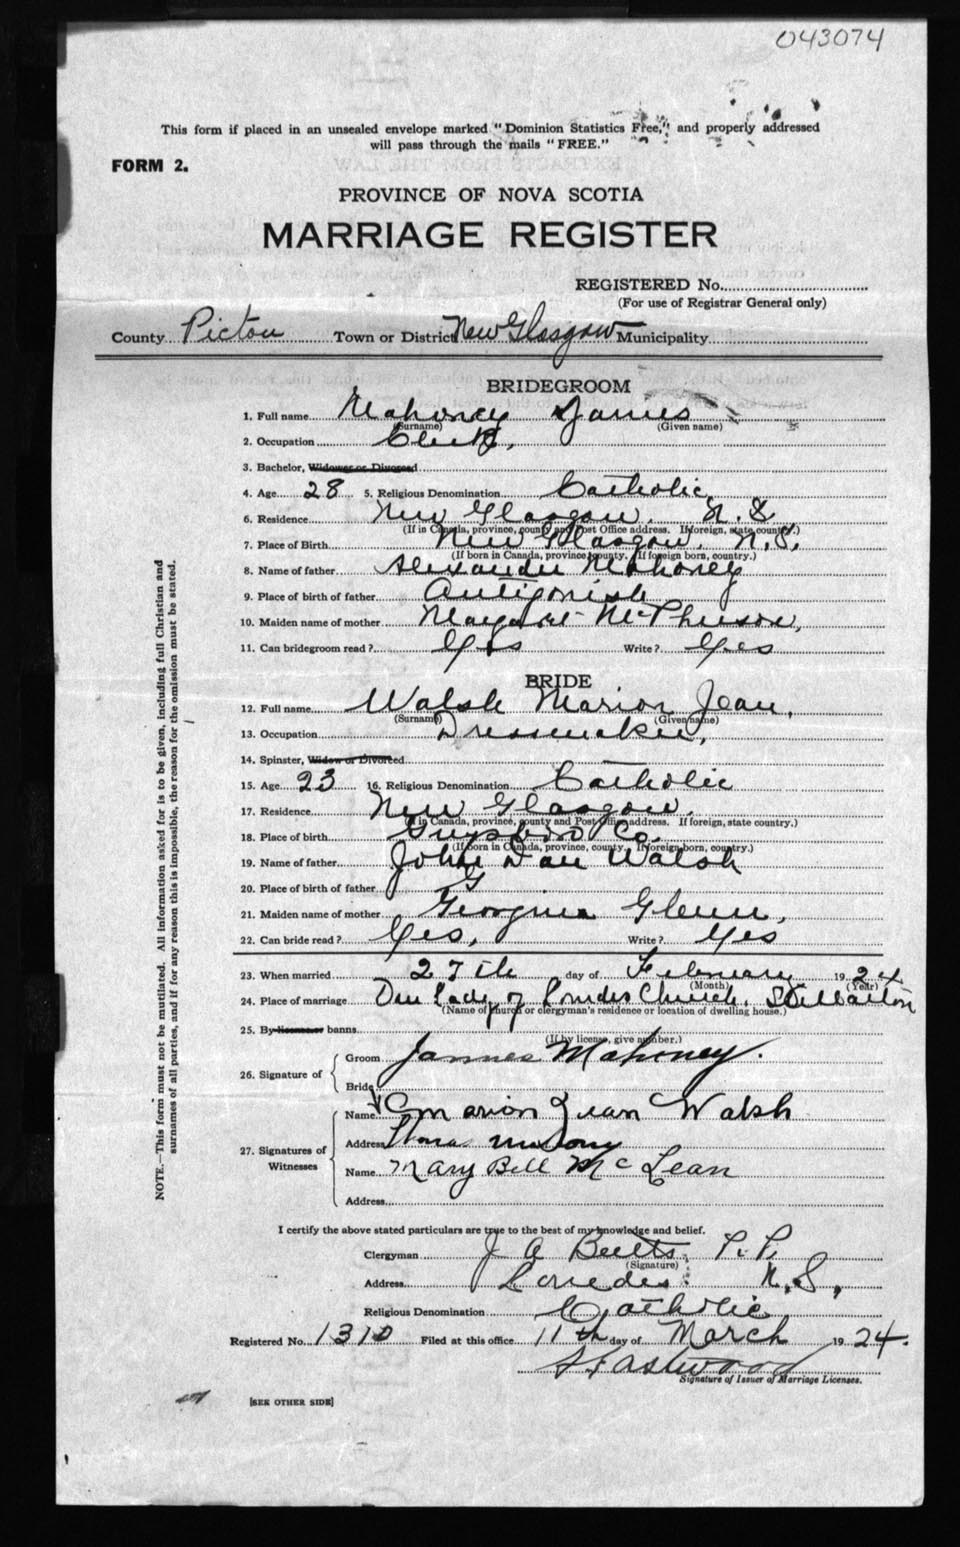 043074
This form if placed in an unsealed envelope marked "Dominion Statistics Free," and properly addressed
will pass through the mails "FREE."
FORM 2.
PROVINCE OF NOVA SCOTIA
MARRIAGE REGISTER
REGISTERED No.
(For use of Registrar General only)
County Pictou Town or District New Glasgow Municipality
BRIDEGROOM
1. Full name Mahoney James
(Surname) (Given name)
2. Occupation Clerk,
3. Bachelor, Widower or Divorced
4. Age 28 5. Religious Denomination Catholic
6. Residence New Glasgow, N.S.
(If in Canada, province, county and Post Office address. If foreign, state country.)
7. Place of Birth New Glasgow, N.S.
(If born in Canada, province, county. If foreign born, country.)
8. Name of father Alexander Mahoney
9. Place of birth of father Antigonish
10. Maiden name of mother Margaret McPherson,
11. Can bridegroom read? Yes Write? Yes
BRIDE
12. Full name Walsh Marion Jean,
(Surname) (Given name)
13. Occupation Dressmaker,
14. Spinster, Widow or Divorced
15. Age 23 16. Religious Denomination Catholic
17. Residence New Glasgow,
(If in Canada, province, county and Post Office address. If foreign, state country.)
18. Place of birth Guysboro Co.
(If born in Canada, province, county. If foreign born, country.)
19. Name of father John Dan Walsh
20. Place of birth of father G
21. Maiden name of mother Georgina Glenn,
22. Can bride read? Yes, Write? Yes
23. When married 27th day of February 1924
(Month) (Year)
24. Place of marriage Our Lady of Lourdes Church, Stellarton
(Name of church or clergyman's residence or location of dwelling house.)
25. By license or banns
(If by license, give number.)
26. Signature of Groom James Mahoney.
Bride
27. Signatures of Witnesses Name Marion Jean Walsh
Address Thomas
Name Mary Bell McLean
Address
I certify the above stated particulars are true to the best of my knowledge and belief.
Clergyman J A Butts P.P.
(Signature)
Address Lourdes. N.S.,
Religious Denomination Catholic
Registered No. 1310 Filed at this office 11th day of March 1924.
Eastwood
Signature of Issuer of Marriage Licenses.
[SEE OTHER SIDE]
NOTE.—This form must not be mutilated. All information asked for is to be given, including full Christian and
surnames of all parties, and if for any reason this is impossible, the reason for the omission must be stated.